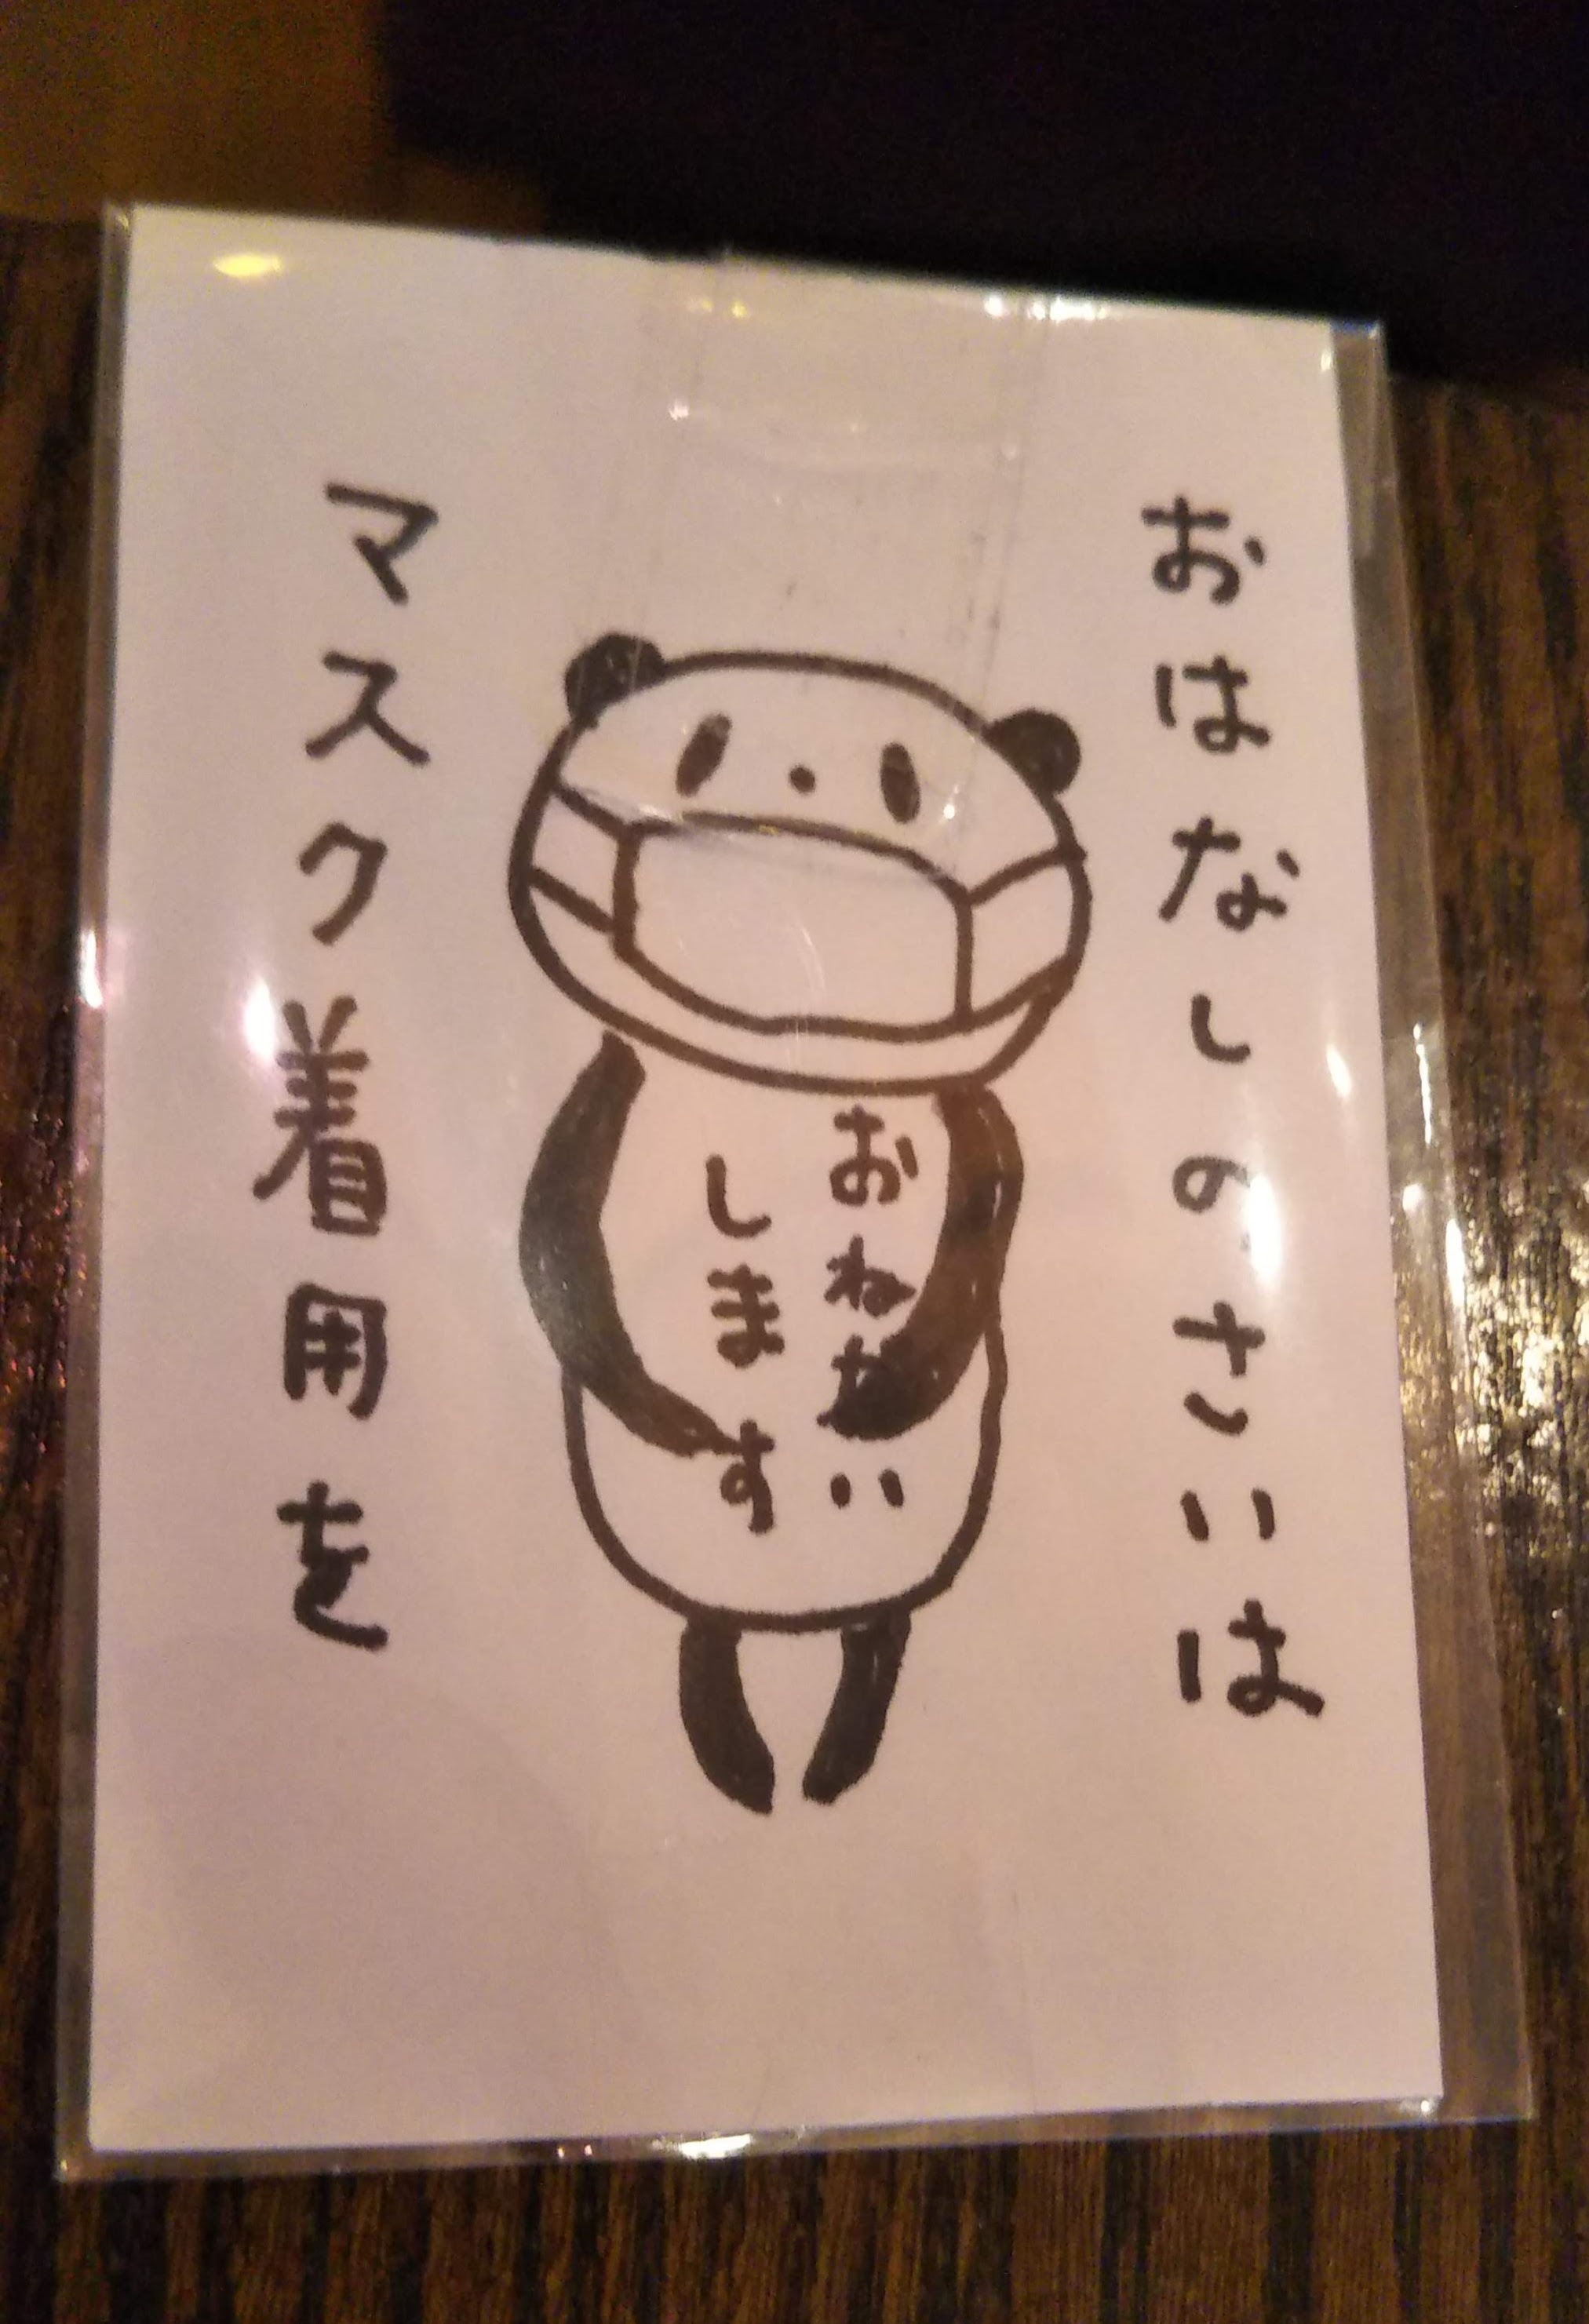 おはなしのさいは
マスク着用を
おねがい
します